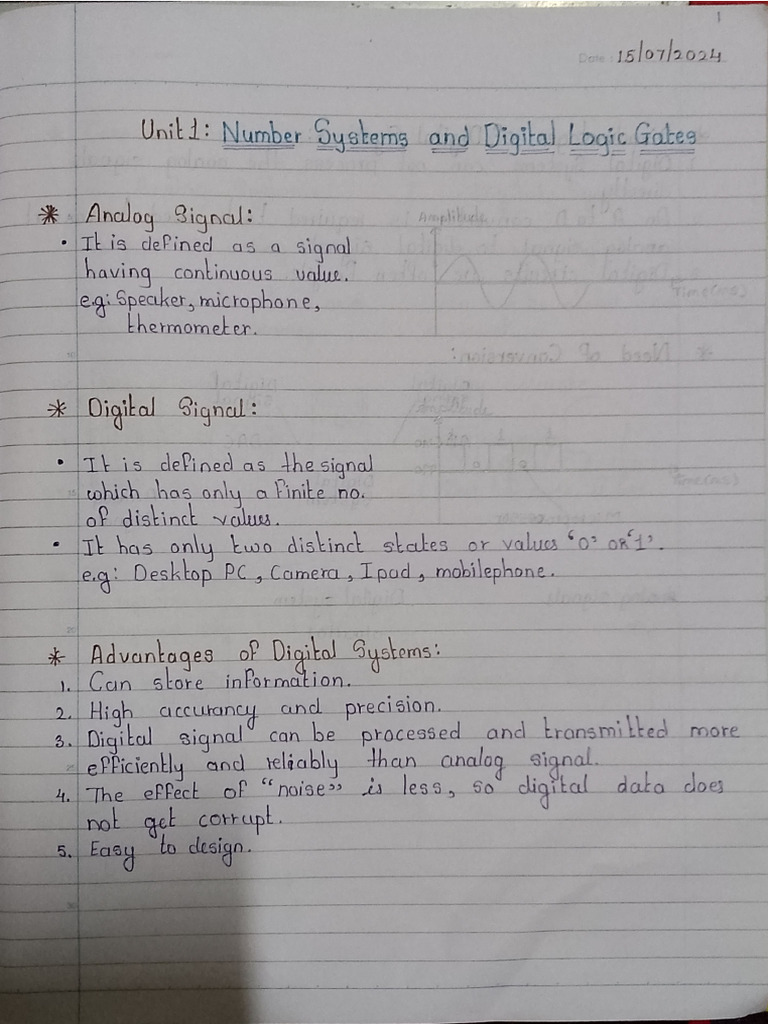 1
Date: 15/07/2024
Unit 1: Number Systems and Digital Logic Gates
* Analog Signal:
Amplitude
• It is defined as a signal
having continuous value.
Time(ns)
e.g: Speaker, microphone,
thermometer.
* Digital Signal:
Amplitude
• It is defined as the signal
Time(ns)
which has only a finite no.
of distinct values.
• It has only two distinct states or values '0' or '1'.
e.g: Desktop PC, Camera, Ipod, mobilephone.
* Advantages of Digital Systems:
1. Can store information.
2. High accurancy and precision.
3. Digital signal can be processed and transmitted more
efficiently and reliably than analog signal.
4. The effect of "noise" is less, so digital data does
not get corrupt.
5. Easy to design.